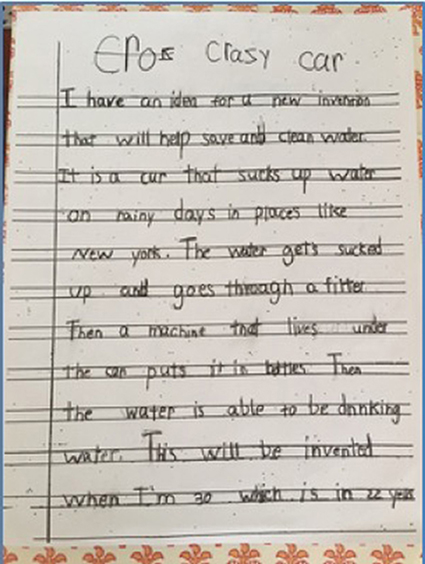 Eros crasy car
I have an idea for a new invention
that will help save and clean water.
It is a car that sucks up water
on rainy days in places like
New york. The water gets sucked
up and goes through a filter.
Then a machine that lives under
the car puts it in bottles. Then
the water is able to be drinking
water. This will be invented
when I'm 30 which is in 22 years